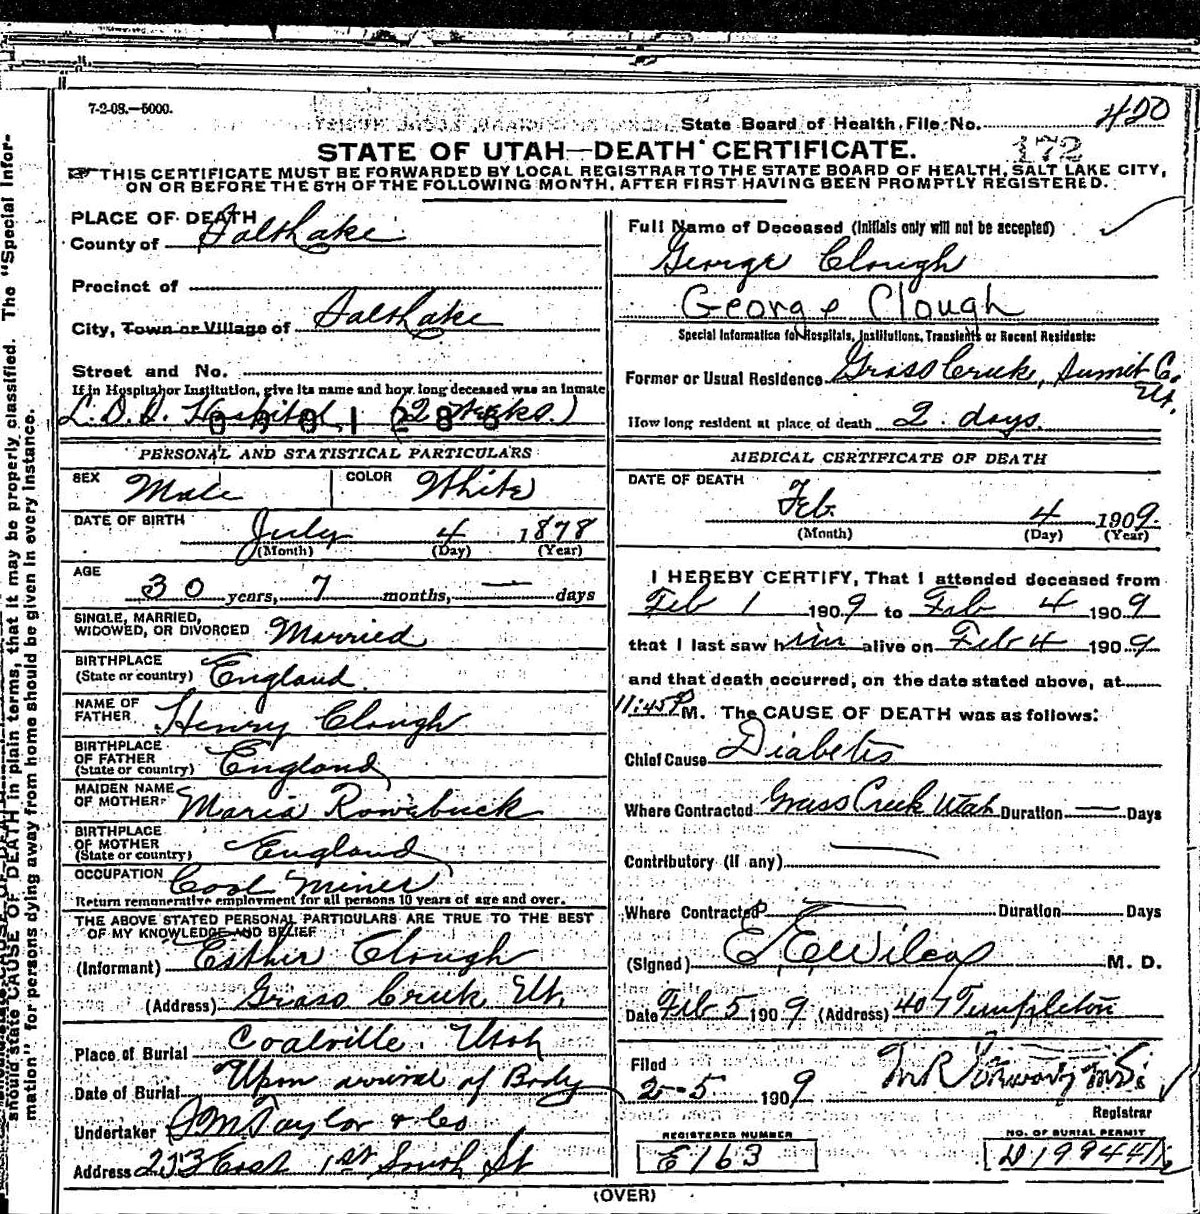 7-2-08.—5000.
State Board of Health File No. 420
172
STATE OF UTAH—DEATH CERTIFICATE.
THIS CERTIFICATE MUST BE FORWARDED BY LOCAL REGISTRAR TO THE STATE BOARD OF HEALTH, SALT LAKE CITY,
ON OR BEFORE THE 5TH OF THE FOLLOWING MONTH, AFTER FIRST HAVING BEEN PROMPTLY REGISTERED.
PLACE OF DEATH
County of Salt Lake
Precinct of
City, Town or Village of Salt Lake
Street and No.
If in Hospital or Institution, give its name and how long deceased was an inmate
L.D.S. Hospital (2 weeks.)
PERSONAL AND STATISTICAL PARTICULARS
SEX Male COLOR White
DATE OF BIRTH July 4 1878
(Month) (Day) (Year)
AGE
30 years, 7 months, — days
SINGLE, MARRIED,
WIDOWED, OR DIVORCED Married
BIRTHPLACE
(State or country) England
NAME OF
FATHER Henry Clough
BIRTHPLACE
OF FATHER
(State or country) England
MAIDEN NAME
OF MOTHER Maria Rowebuck
BIRTHPLACE
OF MOTHER
(State or country) England
OCCUPATION Coal Miner
Return remunerative employment for all persons 10 years of age and over.
THE ABOVE STATED PERSONAL PARTICULARS ARE TRUE TO THE BEST
OF MY KNOWLEDGE AND BELIEF
(Informant) Esther Clough
(Address) Grass Creek Ut.
Place of Burial Coalville. Utah
Date of Burial Upon arrival of Body
Undertaker Taylor & Co
Address 213 East 1st South St
Full Name of Deceased (Initials only will not be accepted)
George Clough
George Clough
Special Information for Hospitals, Institutions, Transients or Recent Residents:
Former or Usual Residence Grass Creek, Sumit Co.
Ut.
How long resident at place of death 2. days.
MEDICAL CERTIFICATE OF DEATH
DATE OF DEATH
Feb. 4 1909.
(Month) (Day) (Year)
I HEREBY CERTIFY, That I attended deceased from
Feb 1 1909 to Feb 4 1909
that I last saw him alive on Feb 4 1909
and that death occurred, on the date stated above, at
11:45 P M. The CAUSE OF DEATH was as follows:
Chief Cause Diabetis
Where Contracted Grass Creek Utah Duration — Days
Contributory (if any) —
Where Contracted — Duration Days
(Signed) E E Wilcox M. D.
Date Feb 5 1909 (Address) 407 Templeton
Filed
2-5 1909
Registrar
REGISTERED NUMBER
E163
NO. OF BURIAL PERMIT
(OVER)
should state CAUSE OF DEATH in plain terms, that it may be properly classified. The "Special Infor-
mation" for persons dying away from home should be given in every instance.